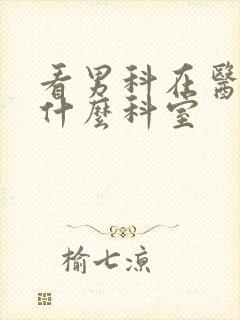 看男科在醫
什麼科室
榆七涼